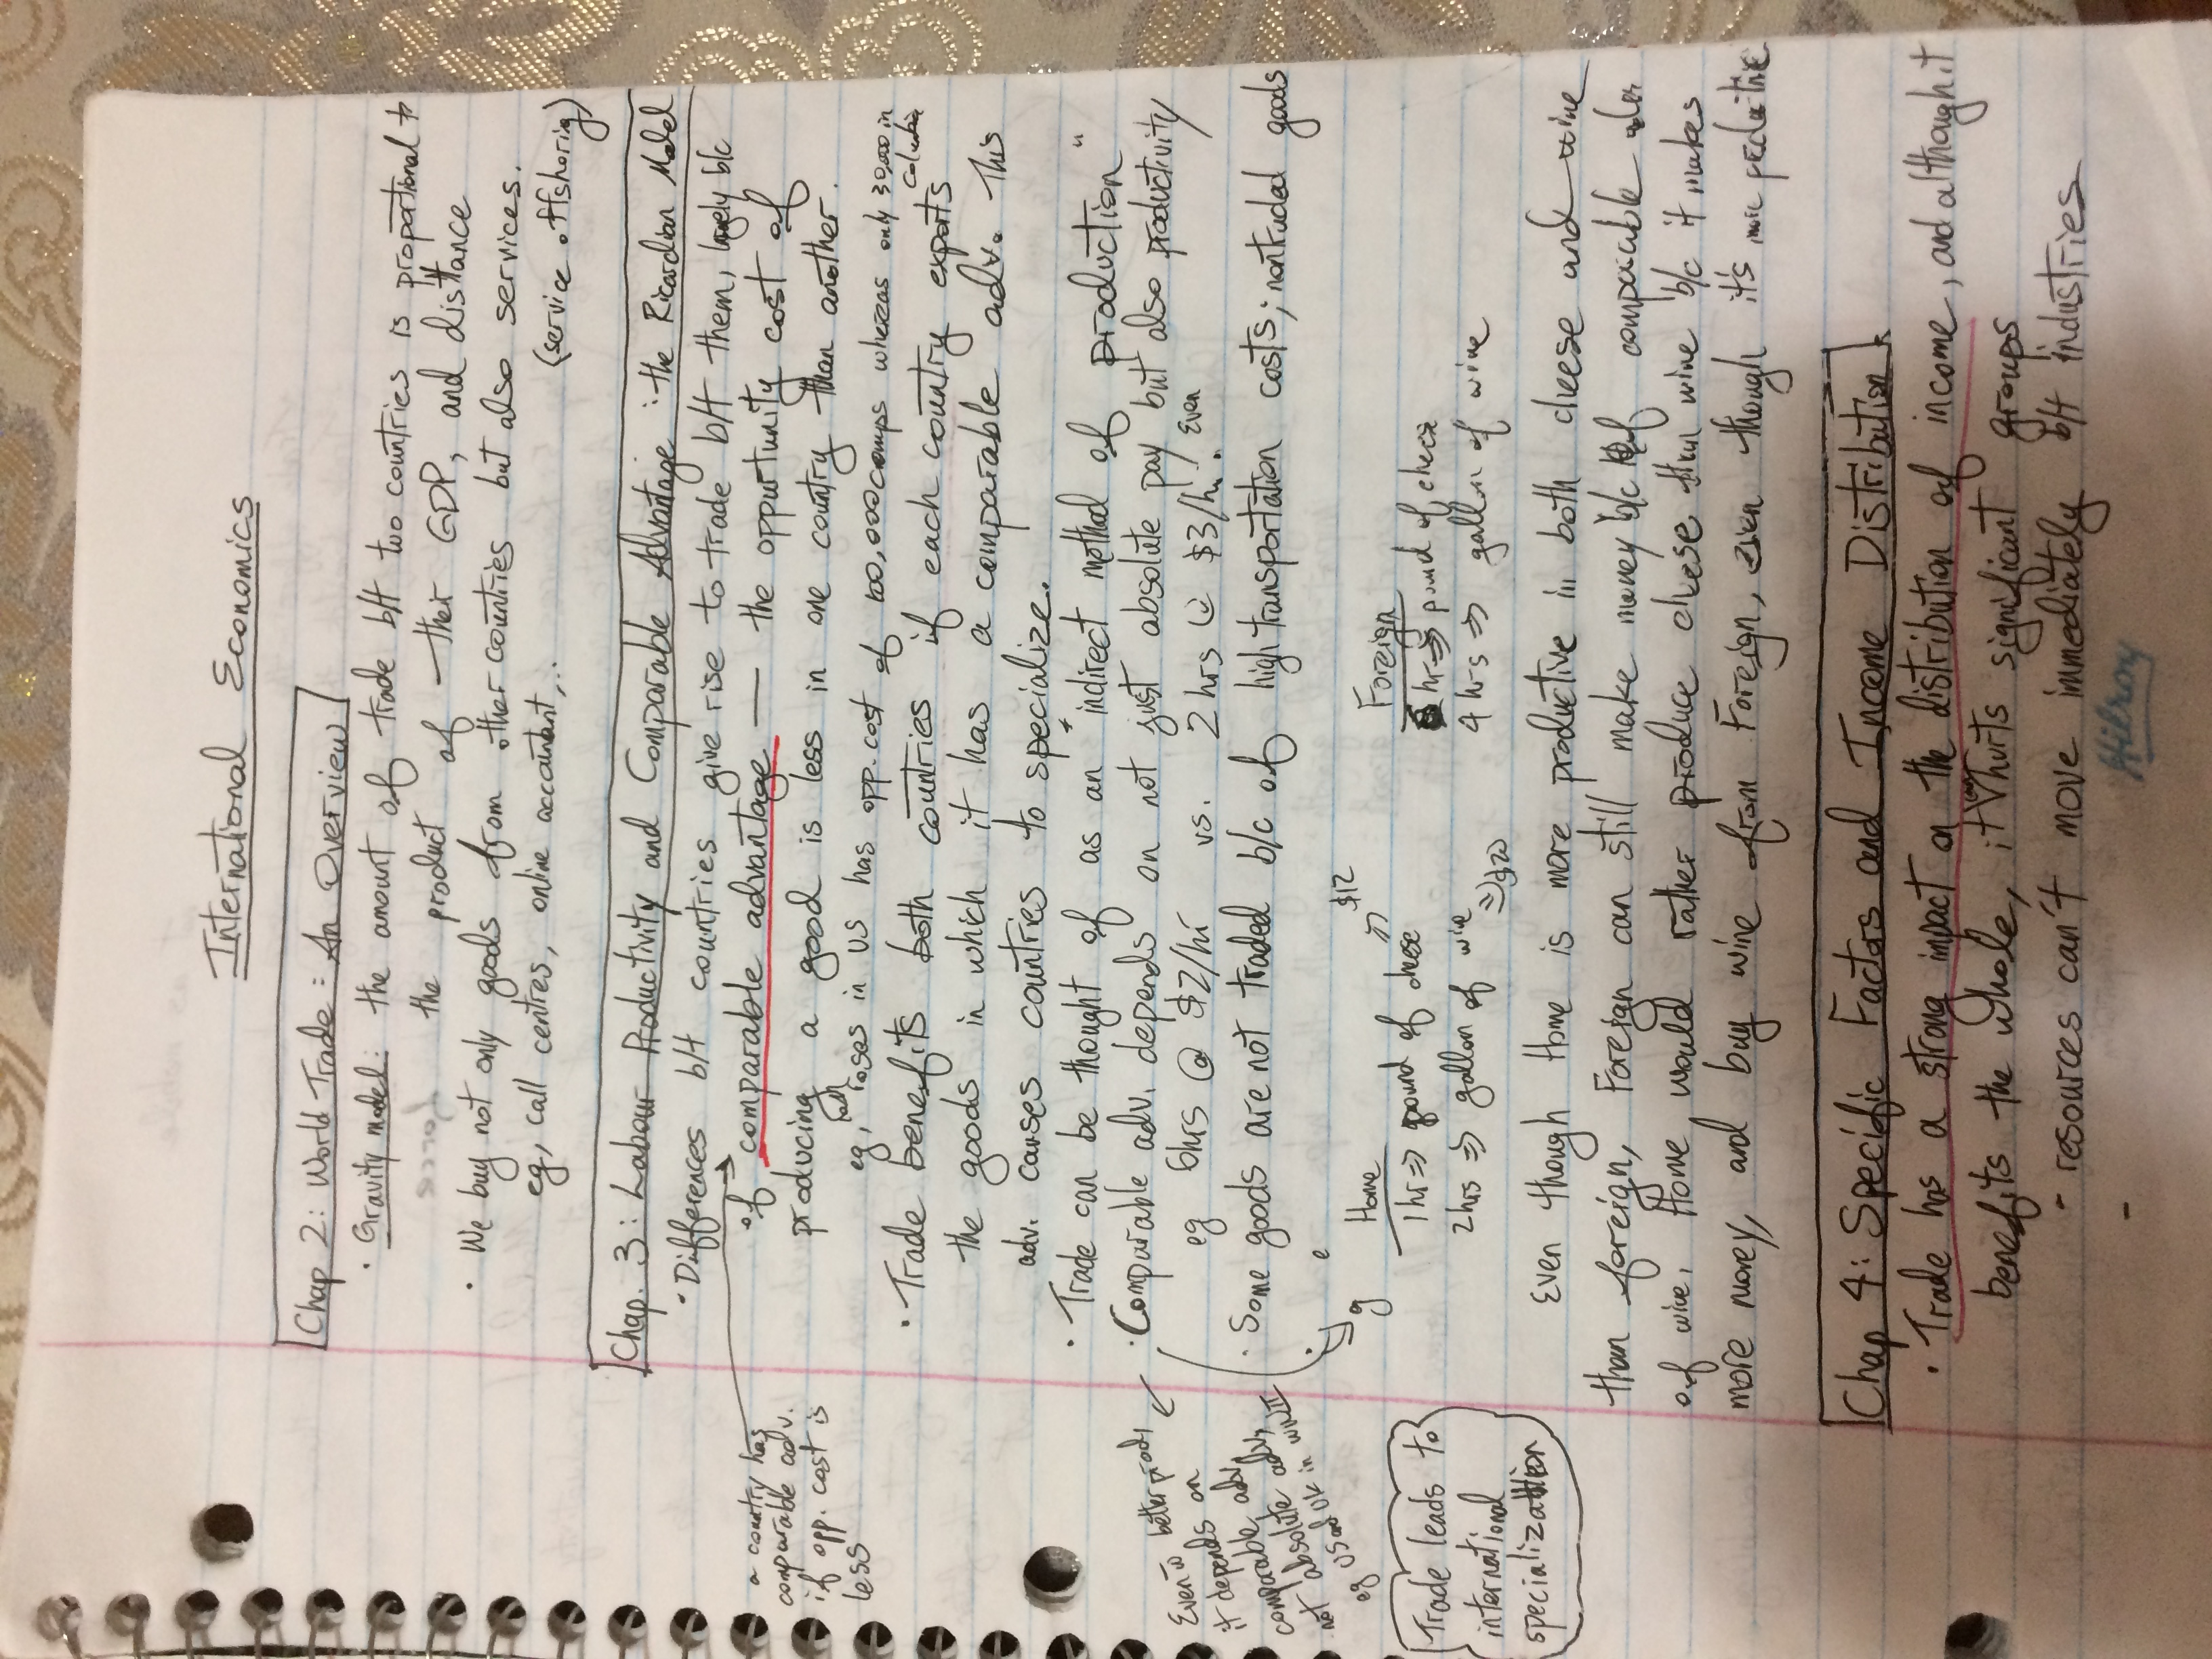 International Economics
Chap 2: World Trade: An Overview
· Gravity model: the amount of trade b/t two countries is proportional to
the product of their GDP, and distance
· We buy not only goods from other countries but also services.
eg, call centres, online accountant,...
(service offshoring)
Chap. 3: Labour Productivity and Comparable Advantage: the Ricardian Model
· Differences b/t countries give rise to trade b/t them, largely b/c
of comparable advantage — the oppurtunity cost of
producing a good is less in one country than another.
a country has
comparable adv.
if opp. cost is
less
eg, roses in US has opp. cost of 100,000 comps whereas only 30,000 in
Columbia
· Trade benefits both countries if each country exports
the goods in which it has a comparable adv. This
adv. causes countries to specialize.
· Trade can be thought of as an "indirect method of production"
· Comparable adv. depends on not just absolute pay but also productivity
eg 6hrs @ $2/hr vs. 2 hrs @ $3/hr. Even
Even w better prod,
it depends on
comparable adv,
not absolute adv,
eg US and UK in WWII
· Some goods are not traded b/c of high transportation costs; nontraded goods
e
g
Home
1hr => pound of cheese => $12
2hrs => gallon of wine => $20
Foreign
hr => pound of cheese
4 hrs => gallon of wine
Trade leads to
international
specialization
Even though Home is more productive in both cheese and wine
than foreign, Foreign can still make money b/c of comparable adv
of wine. Home would rather produce cheese than wine b/c it makes
more money, and buy wine from Foreign, even though it's more productive
Chap 4: Specific Factors and Income Distribution
· Trade has a strong impact on the distribution of income, and although it
benefits the whole, it can hurts significant groups
- resources can't move immediately b/t industries
-
Hilroy